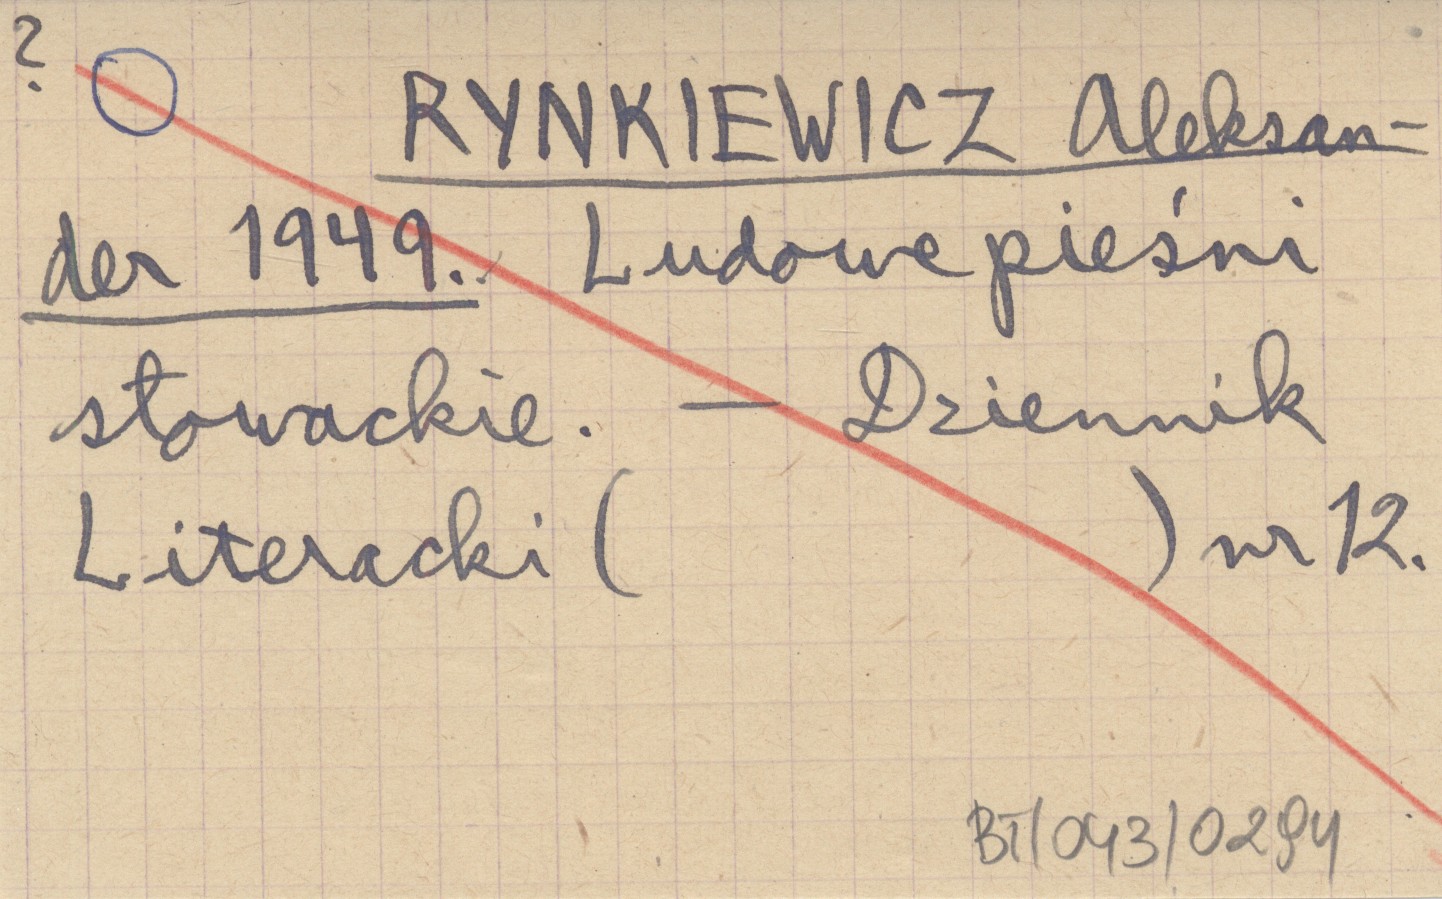 ?
RYNKIEWICZ Aleksan-
der 1949. Ludowe pieśni
słowackie. — Dziennik
Literacki ( ) nr 12.
BT/043/0294